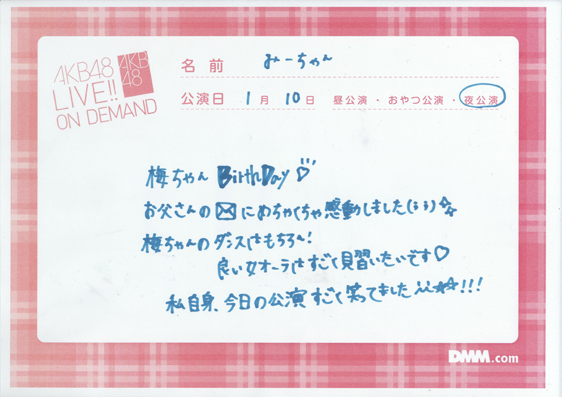 AKB48
LIVE!!
ON DEMAND
AKB
48
名前 みーちゃん
公演日 1月 10日 昼公演・おやつ公演・夜公演
梅ちゃん BirthDay♡
お父さんの✉にめちゃくちゃ感動しました(;;)☆
梅ちゃんのダンスはもちろん!
良い女オーラはすごく見習いたいです♡
私自身、今日の公演すごく笑ってました^^☆☆!!!
DMM.com